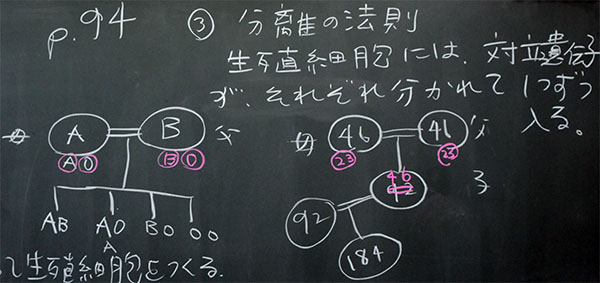 p.94
③ 分離の法則
生殖細胞には、対立遺伝子
が、それぞれ分かれて1つずつ
入る。
A B 父
A O B O
AB AO BO OO
A
46 46 父
23 23
46 子
42
92
184
て生殖細胞をつくる.